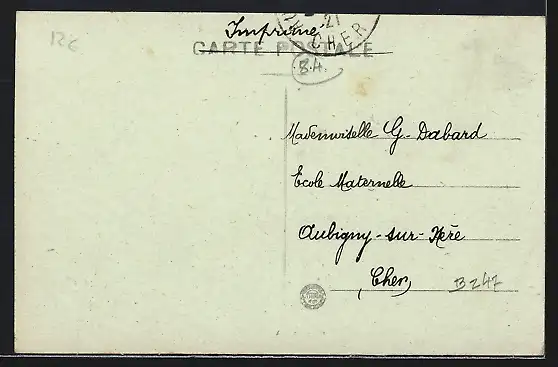 126
Imprimé
21
CHER
CARTE POSTALE
B.4.
Mademoiselle G. Dabard
Ecole Maternelle
Aubigny-sur-Nère
(Cher)
B247